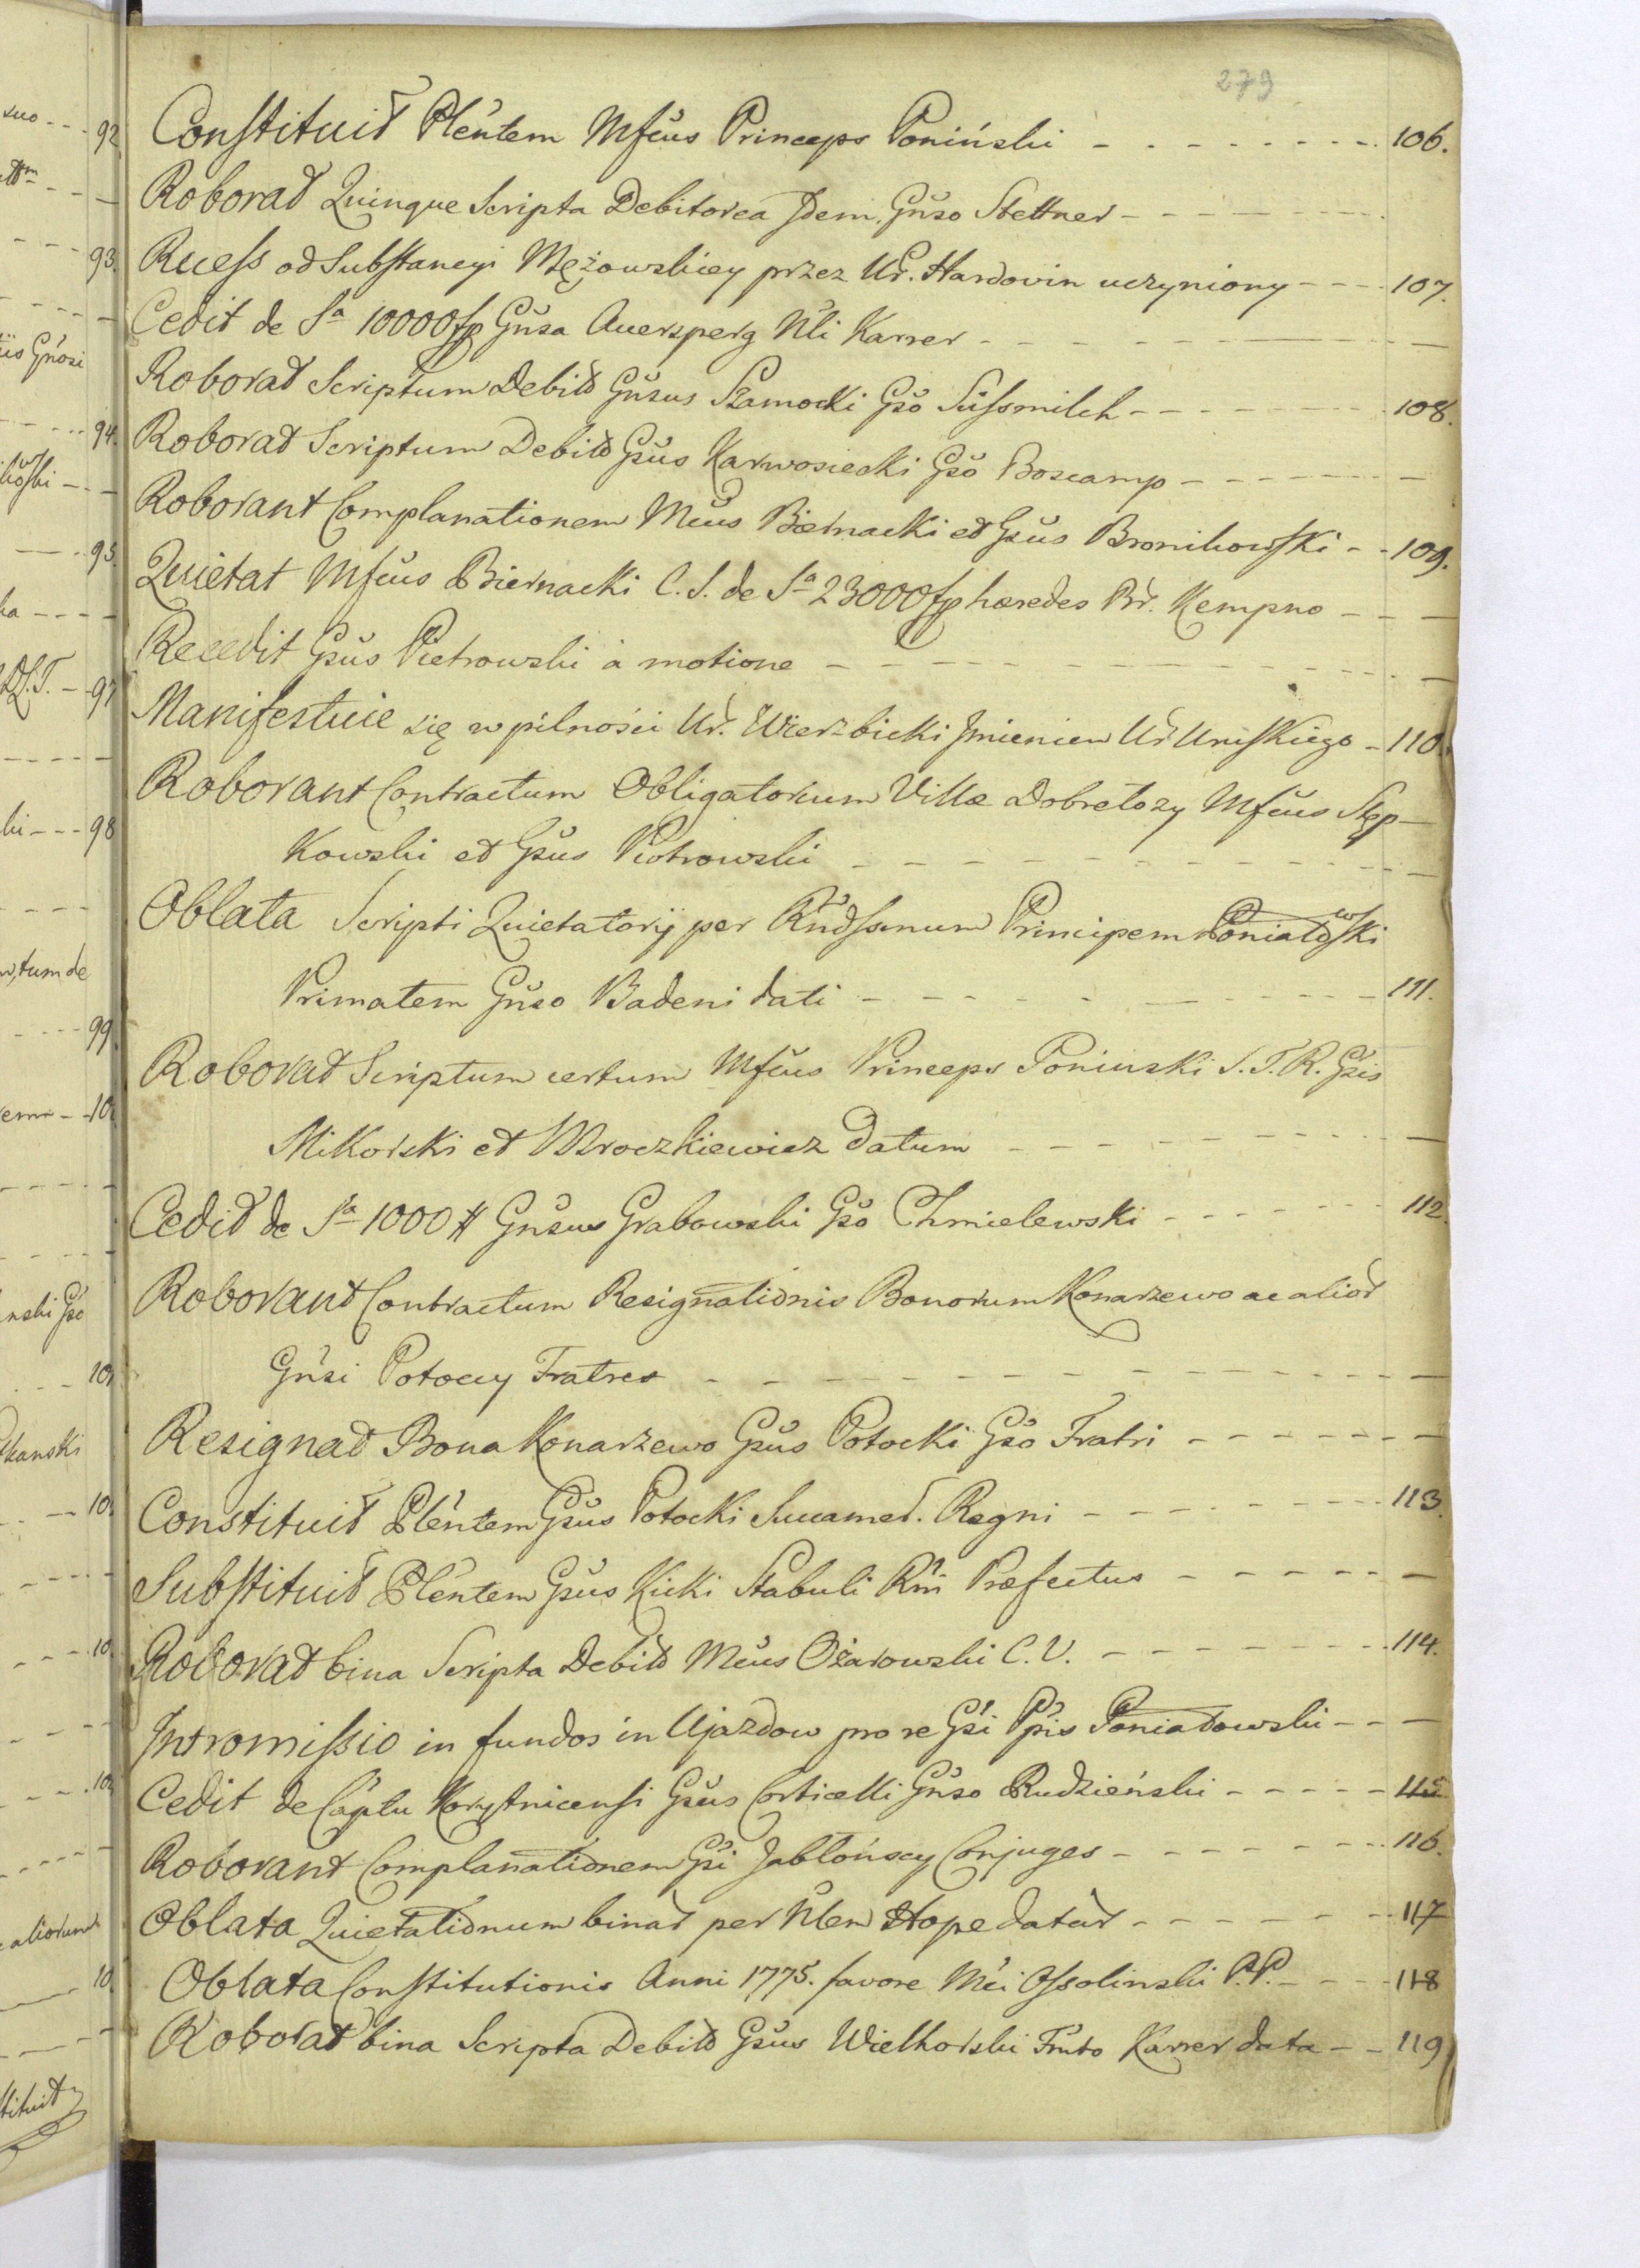 279
Constituit Plentem Mfcus Princeps Poniński - - - - - - - 106.
Roborat Quinque Scripta Debitorea Idem Gnso Stettner - - - - - -
Recess od Substancyi Mężowskiey przez Ur. Hardovin uczyniony - - - 107.
Cedit de Sa 10000 fp Gnsa Auersperg Nli Karrer - - - - - - -
Roborat Scriptum Debiti Gnsus Szamocki Gso Süssmilch - - - - - 108.
Roborat Scriptum Debiti Gsus Karwosiecki Gso Boscamp - - - - - -
Roborant Complanationem Mcus Biernacki et Gsus Bronikowski - - 109.
Quietat Mfcus Biernacki C. S. de Sa 23000 fp hæredes Br. Kempno - - -
Recedit Gsus Pietrowski a motione - - - - - - - -
Manifestuie się w pilności Ur. Wierzbicki Jmieniem Ur Uniskiego - 110.
Roborant Contractum Obligatorium Villæ Dobretozy Mfcus Stęp-
kowski et Gsus Piotrowski - - - - - - - -
Oblata Scripti Quietatorij per Rndssmum Principem Poniatowski
Primatem Gnso Badeni dati - - - - - - - 111.
Roborat Scriptum certum Mfcus Princeps Poninski S. T. R. Gsis
Mikorski et Mroczkiewicz datum - - - - - - -
Cedit de Sa 1000 # Gnsus Grabowski Gso Chmielewski - - - - - 112.
Roborant Contractum Resignationis Bonorum Konarzewo ac alior
Gnsi Potoccy Fratres - - - - - - - -
Resignat Bona Konarzewo Gsus Potocki Gso Fratri - - - - - -
Constituit Plentem Gsus Potocki Succamer. Regni - - - - - - 113.
Substituit Plentem Gsus Kicki Stabuli Rni Præfectus - - - - -
Roborat bina Scripta Debiti Mcus Ożarowski C. V. - - - - - 114.
Intromissio in fundos in Ujazdow pro re Gsi Ppis Poniatowski - - -
Cedit de Captu Korytnicensi Gsus Corticelli Gnso Rudzieński - - - - 115
Roborant Complanationem Gsi Jabłońscy Conjuges - - - - - - 116.
Oblata Quietationum binar per Nlem Hope datar - - - - - - 117
Oblata Constitutionis Anni 1775. favore Mci Ossolinski P. P. - - - 118
Roborat bina Scripta Debiti Gsus Wielhorski Fmto Karrer data - - 119